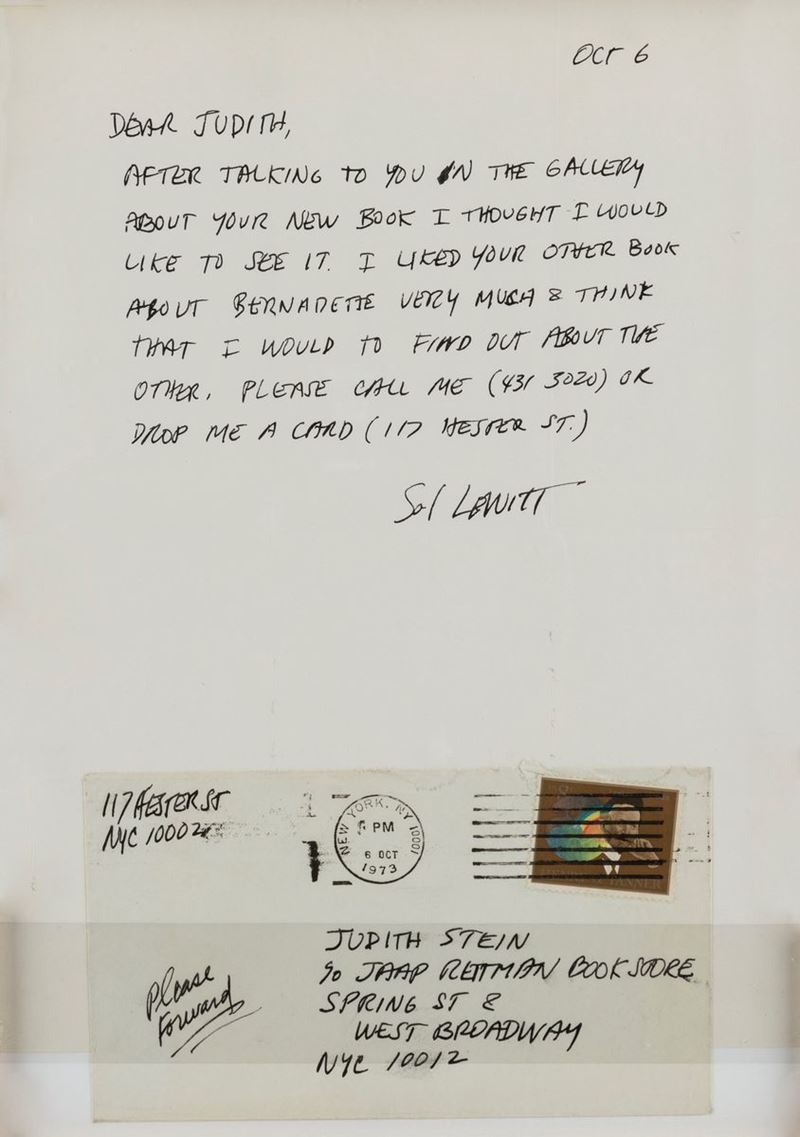 OCT 6
DEAR JUDITH,
AFTER TALKING TO YOU IN THE GALLERY
ABOUT YOUR NEW BOOK I THOUGHT I WOULD
LIKE TO SEE IT. I LIKED YOUR OTHER BOOK
ABOUT BERNADETTE VERY MUCH & THINK
THAT I WOULD TO FIND OUT ABOUT THE
OTHER. PLEASE CALL ME (431 3020) OR
DROP ME A CARD (117 HESTER ST.)
Sol LEWITT
117 HESTER ST
NYC 10002
NEW YORK, NY 10001
PM
6 OCT
1973
TANNER
JUDITH STEIN
c/o JAAP REITMAN BOOKSTORE
SPRING ST &
WEST BROADWAY
NYC 10012
Please
Forward